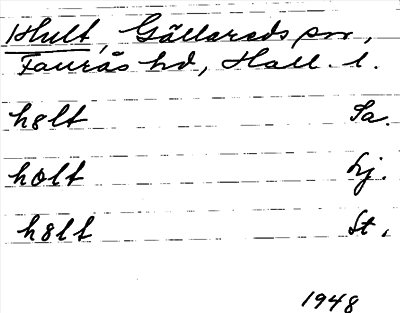 Hult, Gällareds sn,
Faurås hd, Hall. l.
h8lt Sa.
holt Lj.
h8lt St.
1948